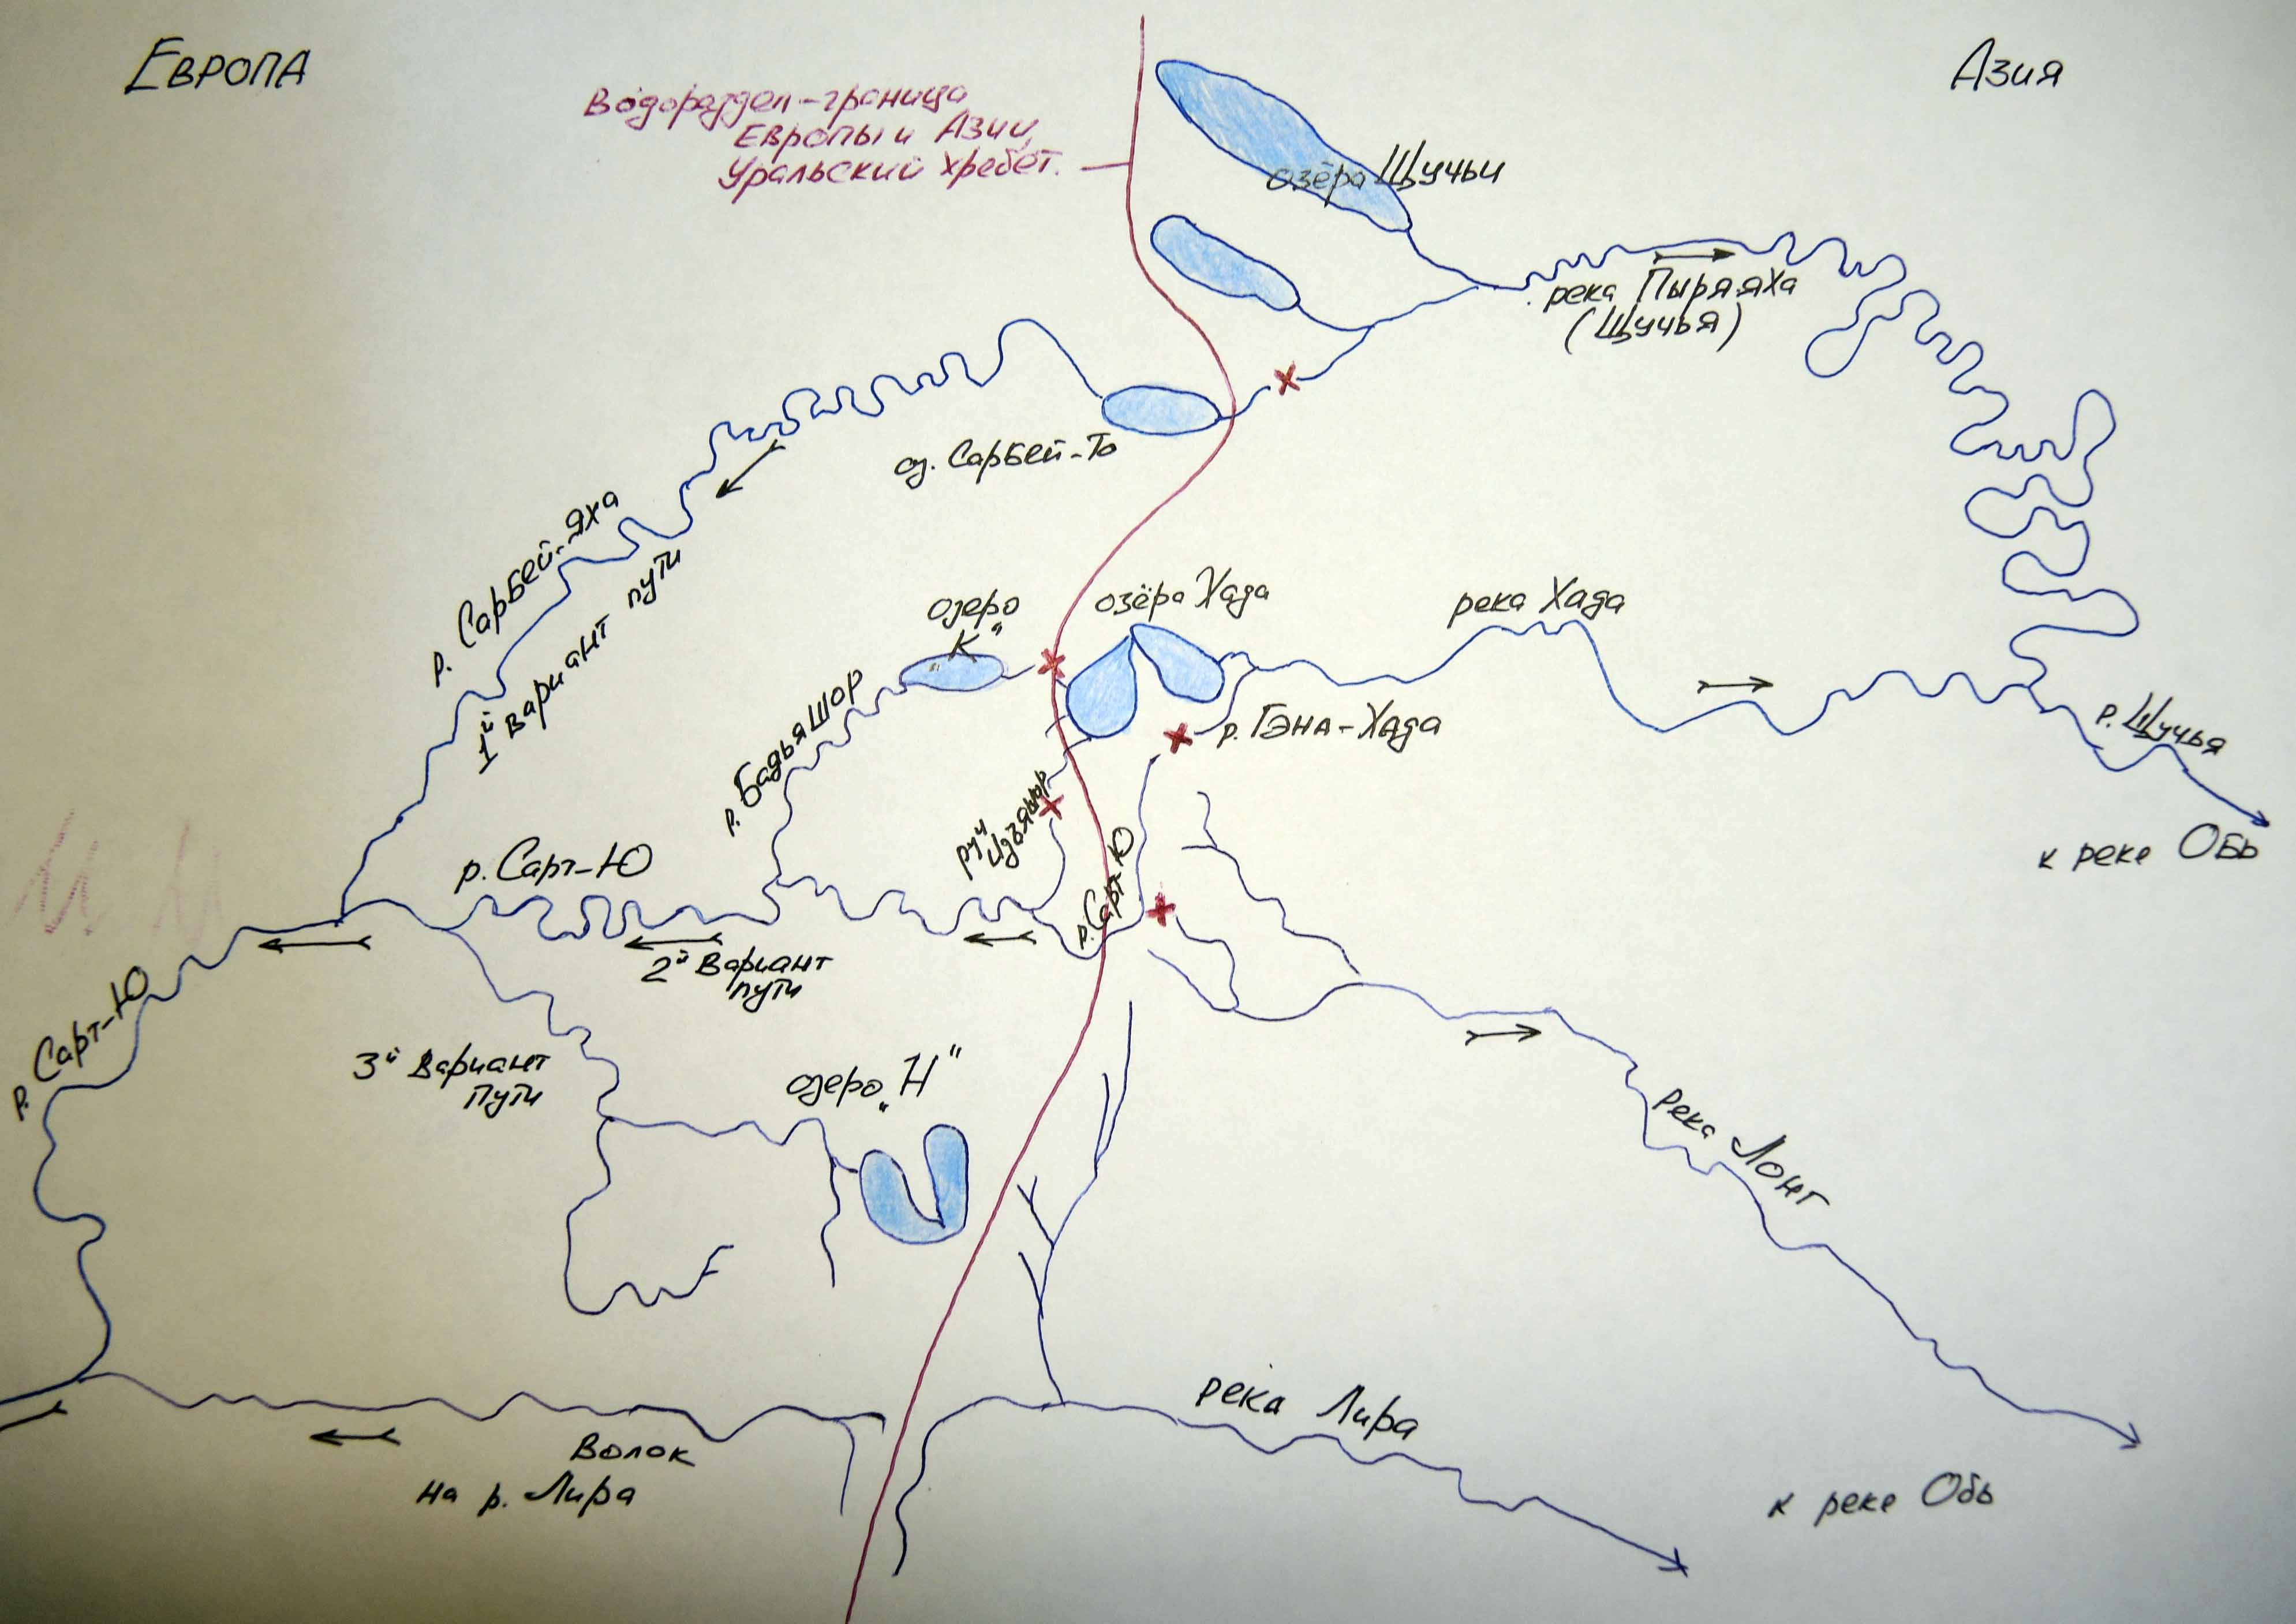 Европа
Азия
Водораздел-граница
Европы и Азии,
Уральский хребет.
озёра Щучьи
река Пыряяха
(Щучья)
оз. Сарбей-То
р. Сарбей-яха
1й вариант пути
озеро
„К“
озёра Хада
река Хада
р. Гэна-Хада
р. Щучья
к реке Обь
р. Бадьяшор
руч
р. Сарт-Ю
р. Сарт-Ю
2й Вариант
пути
р. Сарт-Ю
3й Вариант
пути
озеро „Н“
река Лонг
река Лира
Волок
на р. Лира
к реке Обь